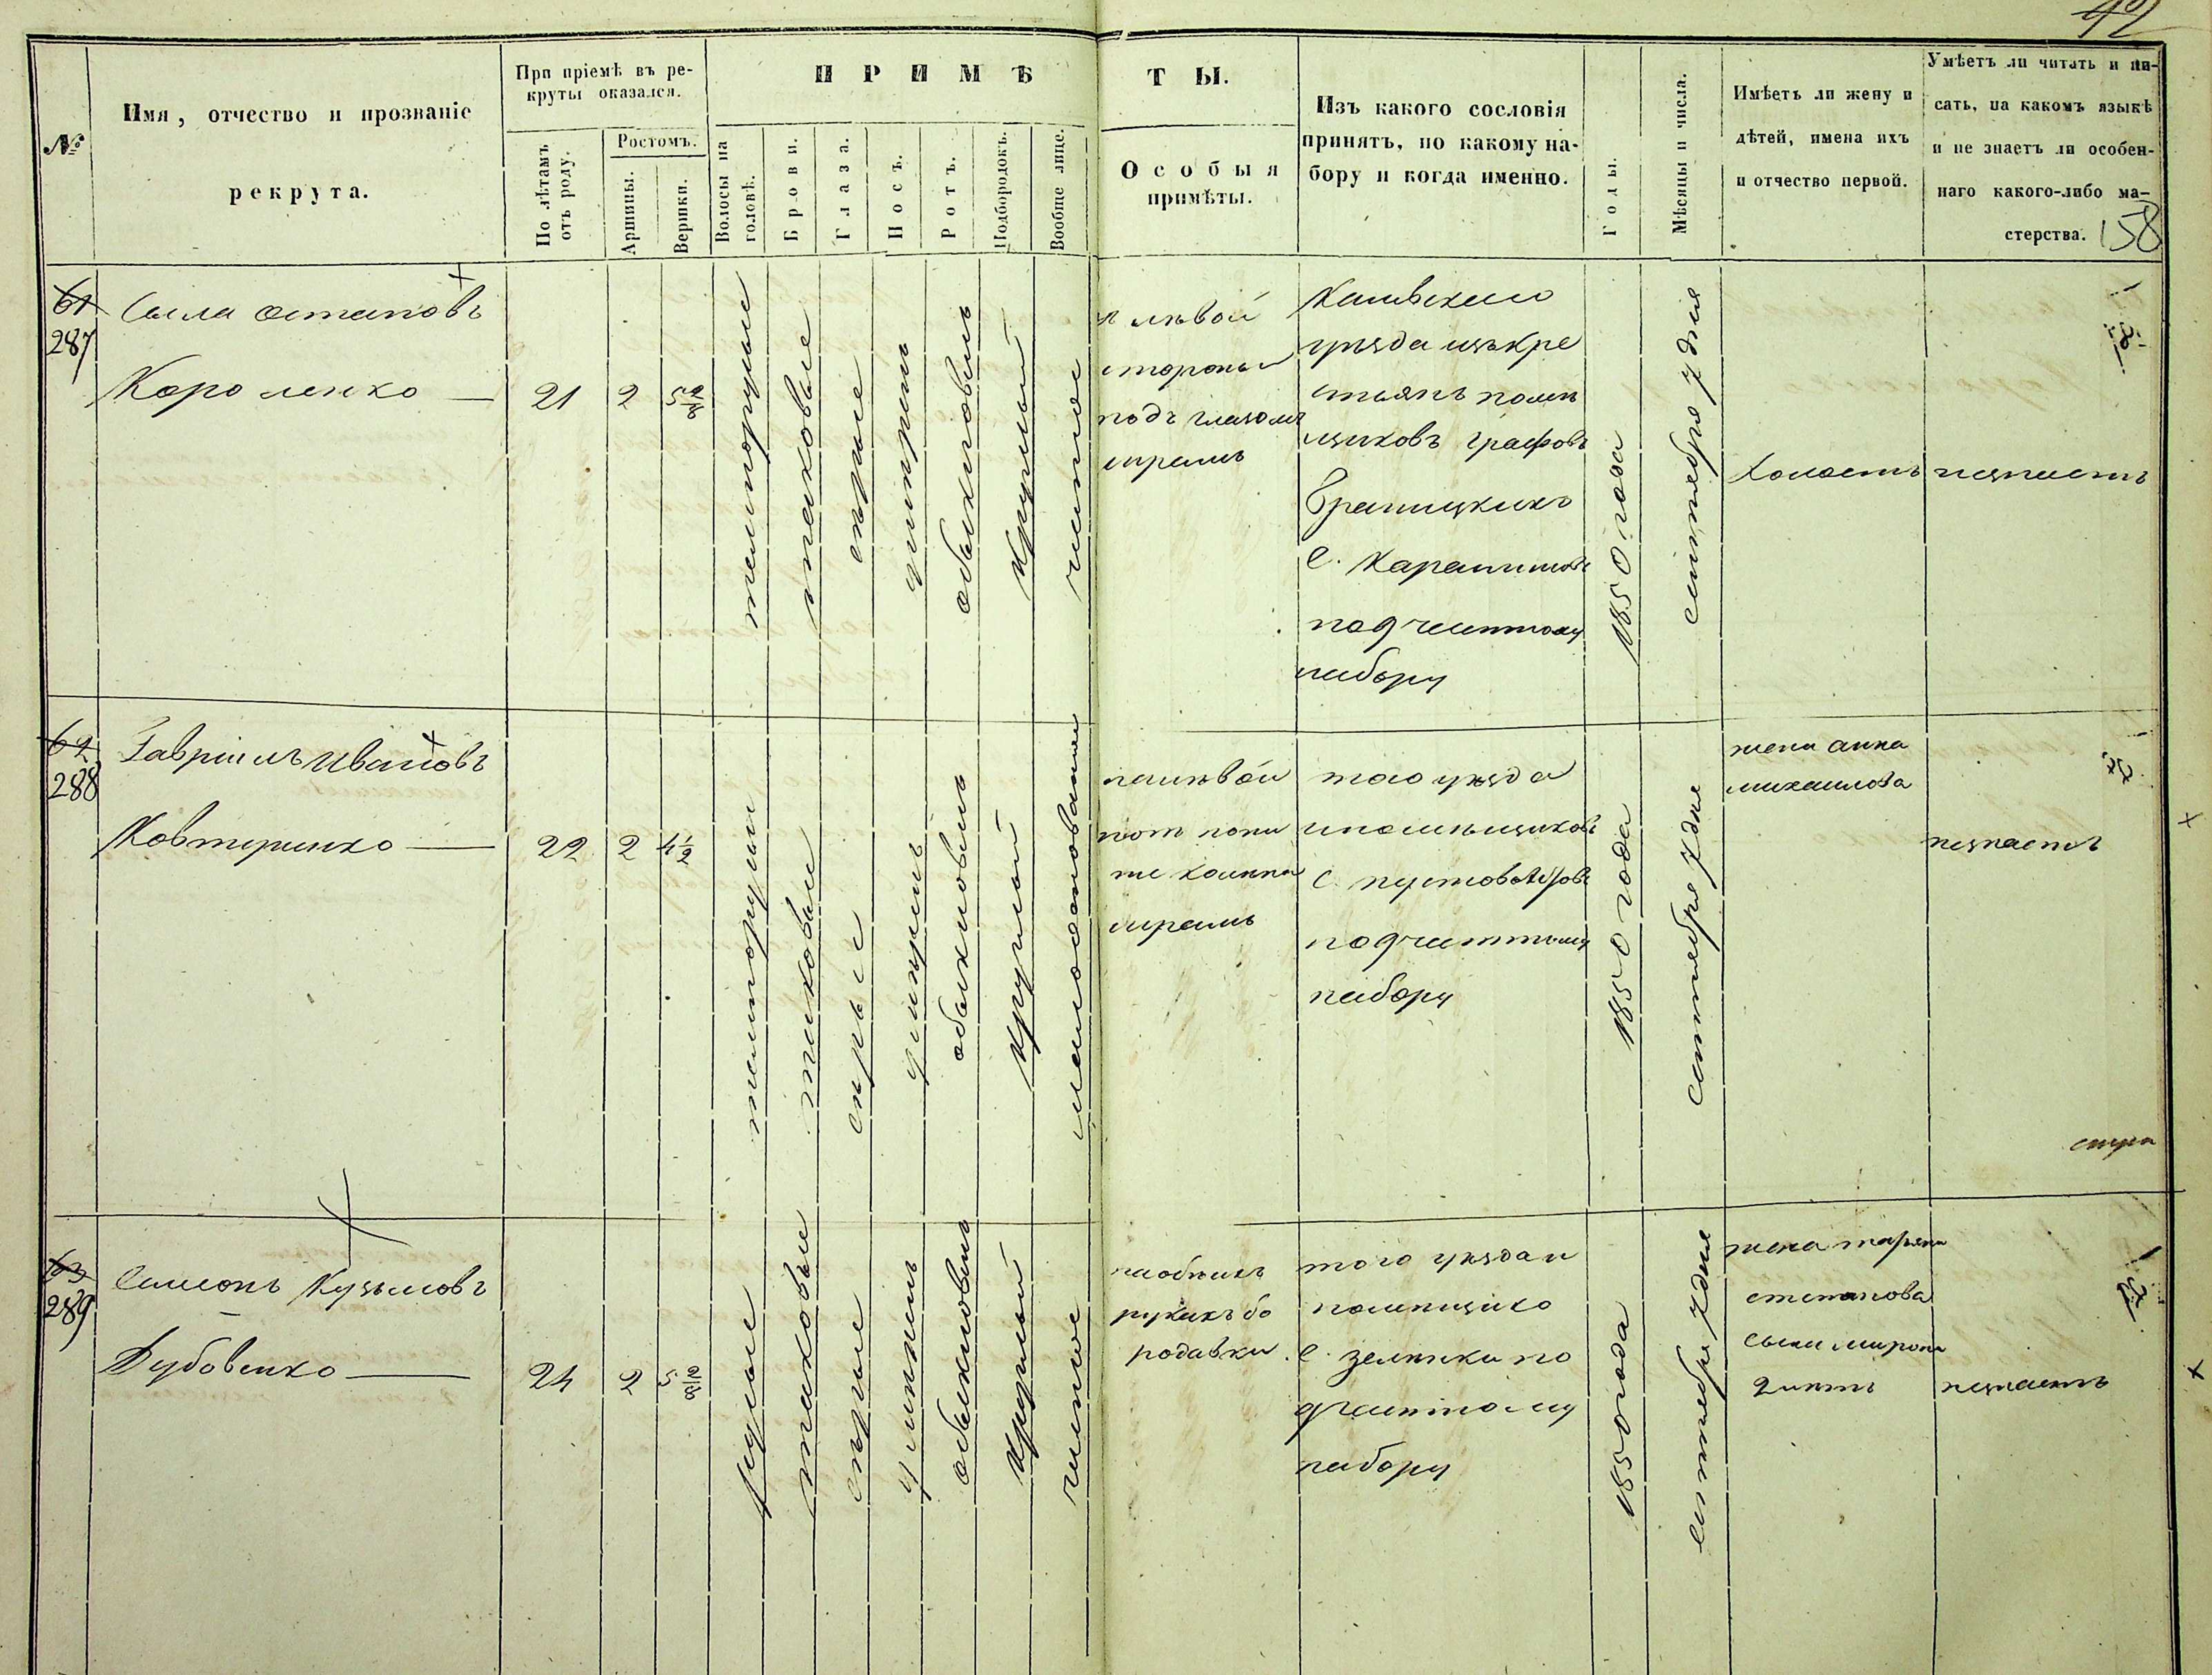 42
№
Имя, отчество и прозваніе
рекрута.
При пріемѣ въ ре-
круты оказался.
По лѣтамъ
отъ роду.
Ростомъ.
Аршины.
Вершки.
ПРИМѢ
ТЫ.
Волосы на
головѣ.
Брови.
Глаза.
Носъ.
Ротъ.
Подбородокъ.
Вообще лице.
Особыя
примѣты.
Изъ какого сословія
принятъ, по какому на-
бору и когда именно.
Годы.
Мѣсяцы и числа.
Имѣетъ ли жену и
дѣтей, имена ихъ
и отчество первой.
Умѣетъ ли читать и пи-
сать, на какомъ языкѣ
и не знаетъ ли особен-
наго какого-либо ма-
стерства.
158
61
287
Остаповъ
Короленко
21
2
5 2/8
темнорусые
таковые
серые
умѣренъ
обыкновенъ
круглый
чистое
лѣвой
стороны
подъ глазомъ
шрамъ
Каневскаго
уѣзда изъ кре
стьянъ помѣ
щиковъ графовъ
Браницкихъ
с.
по 9 частному
набору
1850 года
сентября 7 дня
холостъ
незнаетъ
62
288
Гавріилъ Ивановъ
Ковтуненко
22
2
4 1/2
темнорусые
таковые
серые
умѣренъ
обыкновенъ
круглый
налѣвой
ниже колѣна
шрамъ
того уѣзда
и помѣщиковъ
с.
по 9 частному
набору
1850 года
сентября 7 дня
жена анна
михаилова
незнаетъ
63
289
Кузьмовъ
Дубовенко
24
2
5 2/8
русые
таковые
серые
умѣренъ
обыкновенъ
круглый
чистое
наобѣихъ
рукахъ бо
родавки
того уѣзда и
помѣщико
с. зеленьки по
9 частному
набору
1850 года
сентября 7 дня
жена марьяна
степанова
сынъ миронъ
2 лѣтъ
незнаетъ